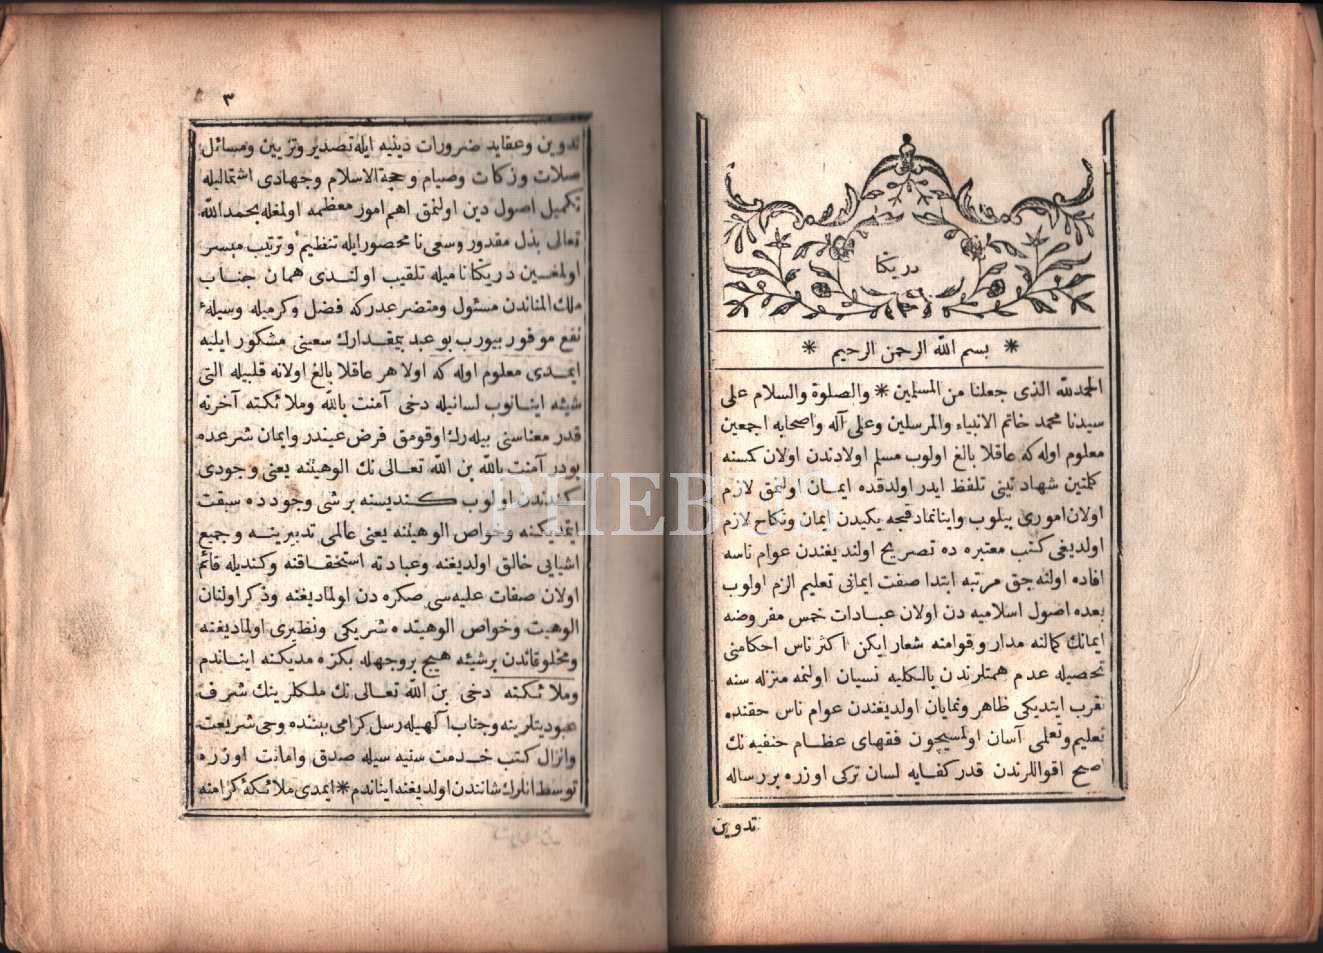 در يكتا
بسم الله الرحمن الرحيم
الحمد لله الذى جعلنا من المسلمين * والصلوة والسلام على
سيدنا محمد خاتم الانبياء والمرسلين وعلى آله واصحابه اجمعين
معلوم اوله كه عاقلا بالغ اولوب مسلم اولادندن اولان كمسنه
كلمتين شهادتينى تلفظ ايدر اولدقده ايمان اولنمق لازم
اولان امورى بيلوب واينانمادقجه يكيدن ايمان ونكاح لازم
اولديغى كتب معتبره ده تصريح اولنديغندن عوام ناسه
افاده اولنه جق مرتبه ابتدا صفت ايمانى تعليم الزم اولوب
بعده اصول اسلاميه دن اولان عبادات خمس مفروضه
ايمانك كمالنه مدار وقوامنه شعار ايكن اكثر ناس احكامنى
تحصيله عدم همتلرندن بالكليه نسيان اولنمه منزله سنه
تقرب ايتديكى ظاهر ونمايان اولديغندن عوام ناس حقنده
تعليم وتعلمى آسان اولمسيچون فقهاى عظام حنفيه نك
اصح اقواللرندن قدر كفايه لسان تركى اوزره بر رساله
تدوين
٣
تدوين وعقايد ضرورات دينيه ايله تصدير وتزيين ومسائل
صلات وزكات وصيام وحجة الاسلام وجهادى اشتماليله
تكميل اصول دين اولنمق اهم امور معظمه اولمغله بحمد الله
تعالى بذل مقدور وسعى نا محصور ايله تنظيم وترتيب ميسر
اولمغين در يكتا ناميله تلقيب اولندى همان جناب
ملك المناندن مسئول ومتضرعدركه فضل وكرميله وسيله
نفع موفور بيورب بو عبد بيمقدارك سعينى مشكور ايليه
ايمدى معلوم اوله كه اولا هر عاقلا بالغ اولانه قلبيله التى
شيئه اينانوب لسانيله دخى آمنت بالله وملائكته آخرنه
قدر معناسنى بيله رك اوقومق فرض عيندر وايمان شرعده
بودر آمنت بالله بن الله تعالى نك الوهيتنه يعنى وجودى
كندندن اولوب كنديسنه بر شى وجودده سبقت
ايتمديكنه وخواص الوهيتنه يعنى عالمى تدبيرينه وجميع
اشيايى خالق اولديغنه وعبادته استحقاقنه وكنديله قائم
اولان صفات عليه سى صكره دن اولماديغنه وذكر اولنان
الوهيت وخواص الوهيتده شريكى ونظيرى اولماديغنه
ومخلوقاتدن بر شيئه هيچ بر وجهله بكزه مديكنه ايناندم
وملائكته دخى بن الله تعالى نك ملكلرينك شرف
عبوديتلرينه وجناب الهيله رسل كرامى بيننده وحى شريعت
وانزال كتب خدمت سنيه سيله صدق وامانت اوزره
توسط انلرك شانندن اولديغنه ايناندم * ايمدى ملائكه كرامنه
PHEBUS